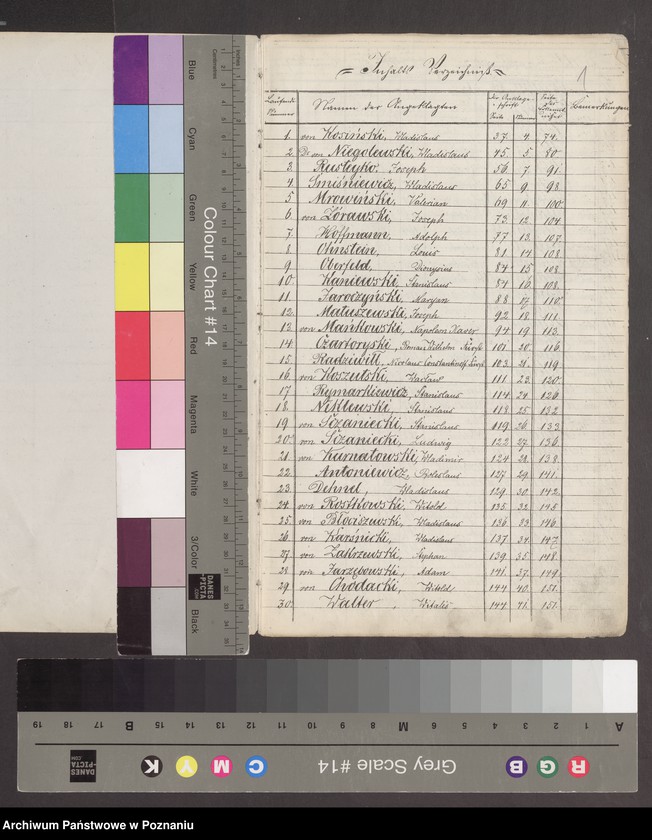 Inhalts Verzeichniß
1
Laufende Nummer
Namen der Angeklagten
Seite
Nummer
Bemerkungen
1. von Kosiński, Wladislaus 37. 4. 74.
2. Dr von Niegolewski, Wladislaus 45. 5. 80.
3. Rusteyko, Joseph 56. 7. 91.
4. Smiśniewicz, Wladislaus 65. 9. 98.
5 Mrowiński, Valerian 69 11. 100.
6. von Żórawski, Joseph 73. 12. 104.
7. Hoffmann, Adolph 77. 13. 107.
8. Ohnstein, Louis 81. 14. 108.
9 Oberfeld, Dionysius 84. 15. 108.
10. Kaniewski, Stanislaus 84. 16. 108.
11. Jaroczyński, Maryan 88. 17. 110.
12. Matuszewski, Joseph 92. 18. 111.
13. von Mańkowski, Napoleon Xaver 94. 19. 113.
14. Czartoryski, Roman Wilhelm 101. 20. 116.
15. Radziwiłł, Nicolaus Constantin 103. 21. 119.
16. von Koszutski, 111. 23. 120.
17. Rymarkiewicz, Stanislaus 114. 24. 126.
18. Niklewski, Stanislaus 118. 25. 132.
19 von Sczaniecki, Stanislaus 119. 26. 133.
20. von Sczaniecki, Ludwig 122. 27. 136.
21. von Kurnatowski, Wladimir 124. 28. 138.
22. Antoniewicz, Boleslaus 127. 29. 141.
23. Dehnel, Wladislaus 129. 30. 142.
24. von Witold 135. 32. 145.
25. von Błociszewski, Wladislaus 136. 33. 146.
26. von Karśnicki, Wladislaus 137. 34. 147.
27. von Zakrzewski, Stephan 139. 35. 148.
28. von Jarzębowski, Adam 141. 37. 149.
29. von Chodacki, Witold 144. 40. 151.
30. Walter, Vitalis 144. 41. 151.
Colour Chart #14
Blue
Cyan
Green
Yellow
Red
Magenta
White
3/Color
Black
Centimetres
Inches
DANES
-PICTA
.COM
19 18 17 B 15 14 13 12 11 10 9 8 M 6 5 4 3 2 1 A
DANES
-PICTA
.COM
K Y M C Grey Scale #14 B G R
Archiwum Państwowe w Poznaniu